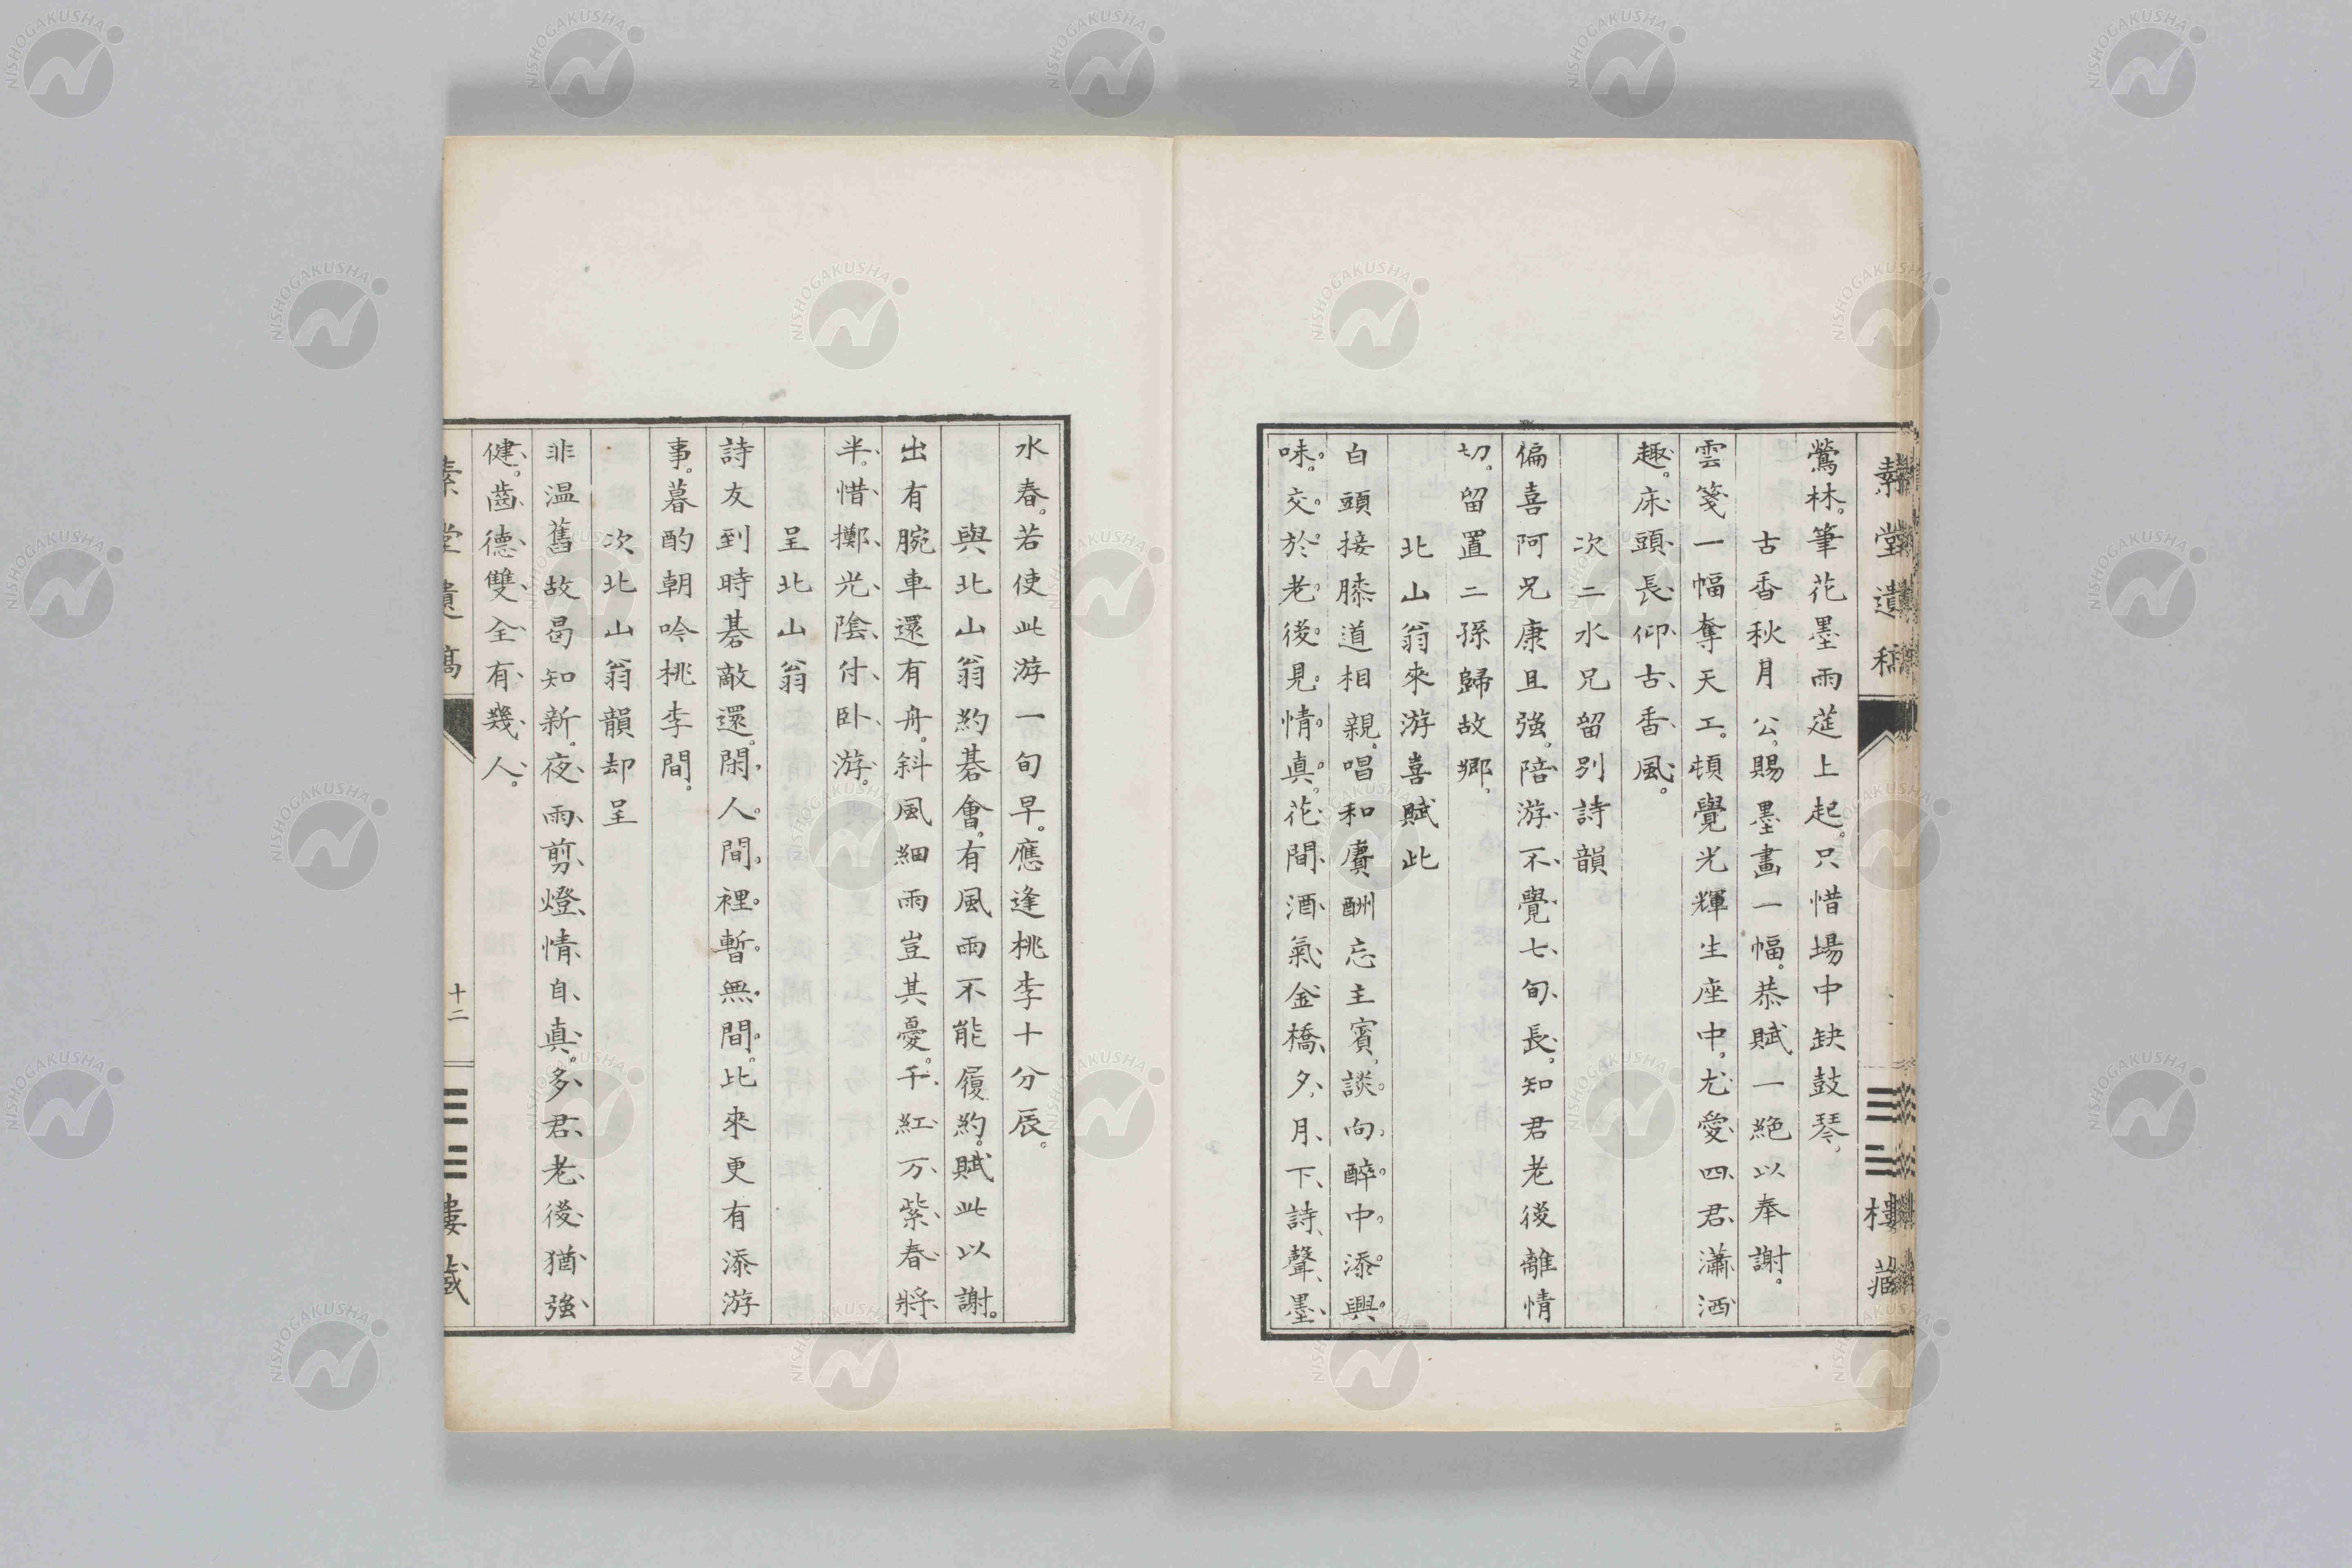 素堂遺稿
樓藏
鶯林。筆花墨雨莚上起。只惜場中缺鼓琴。
古香秋月公。賜墨畫一幅。恭賦一絕以奉謝。
雲箋一幅奪天工。頓覺光輝生座中。尤愛四君瀟洒
趣。床頭長仰古香風。
次二水兄留別詩韻
偏喜阿兄康且強。陪游不覺七旬長。知君老後離情
切。留置二孫歸故鄉。
北山翁來游喜賦此
白頭接膝道相親。唱和賡酬忘主賓。談向醉中添興
味。交於老後見情真。花間酒氣金橋夕。月下詩聲墨
水春。若使此游一旬早。應逢桃李十分辰。
與北山翁約碁會。有風雨不能履約。賦此以謝。
出有腕車還有舟。斜風細雨豈其憂。千紅万紫春將
半。惜擲光陰付卧游。
呈北山翁
詩友到時碁敵還。閑人間裡暫無間。比來更有添游
事。暮酌朝吟桃李間。
次北山翁韻却呈
非溫舊故曷知新。夜雨剪燈情自真。多君老後猶強
健。齒德雙全有幾人。
素堂遺稿
十二
樓藏
NISHOGAKUSHA